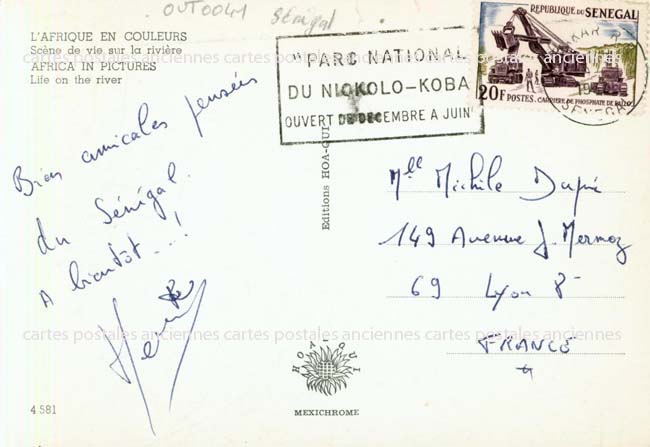 OUT0041
Sénégal
L'AFRIQUE EN COULEURS
Scène de vie sur la rivière
AFRICA IN PICTURES
Life on the river
"PARC NATIONAL
DU NIOKOLO-KOBA
OUVERT DE DECEMBRE A JUIN
REPUBLIQUE DU SENEGAL
20F POSTES. CARRIERE DE PHOSPHATE DE PALLO
DAKAR
SENEGAL
Bien amicales pensées
du Sénégal.
A bientôt...!
Editions HOA-QUI
Mlle Michèle Dupré
149 Avenue J. Mermoz
69 Lyon 8e
FRANCE
cartes postales anciennes cartes postales anciennes cartes postales anciennes
cartes postales anciennes cartes postales anciennes cartes postales anciennes
HOA-QUI
MEXICHROME
4 581